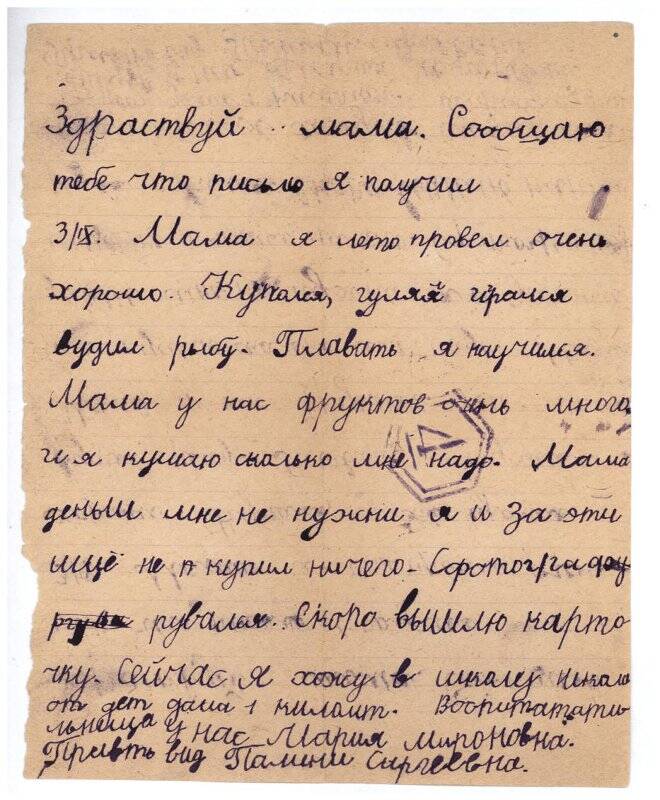 Здраствуй мама. Сообщаю
тебе что письмо я получил
3/IX. Мама я лето провел очень
хорошо. Купался, гуляй ігрался
вудил рыбу. Плавать я научился.
Мама у нас фруктов очнь много
и я кушаю сколько мне надо. Мама
деньш мне не нужни я и за эти
ищё не п купил ничего. Сфотогра
рувался. Скоро вышлю карто
чку. Сейчас я хожу в школу школа
от дет дама 1 килмт. Воспитатати
льница у нас Мария Мироновна.
Привть вид Палини Сиргеевна.